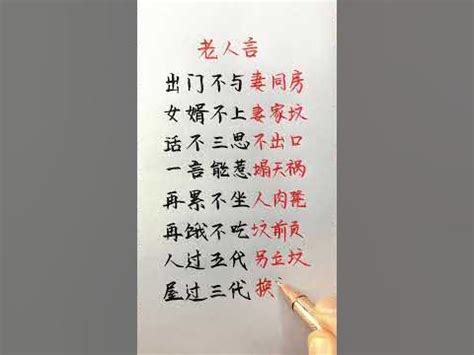 老人言
出门不与妻同房
女婿不上妻家坟
话不三思不出口
一言能惹塌天祸
再累不坐人肉凳
再饿不吃坟前贡
人过五代另立坟
屋过三代换